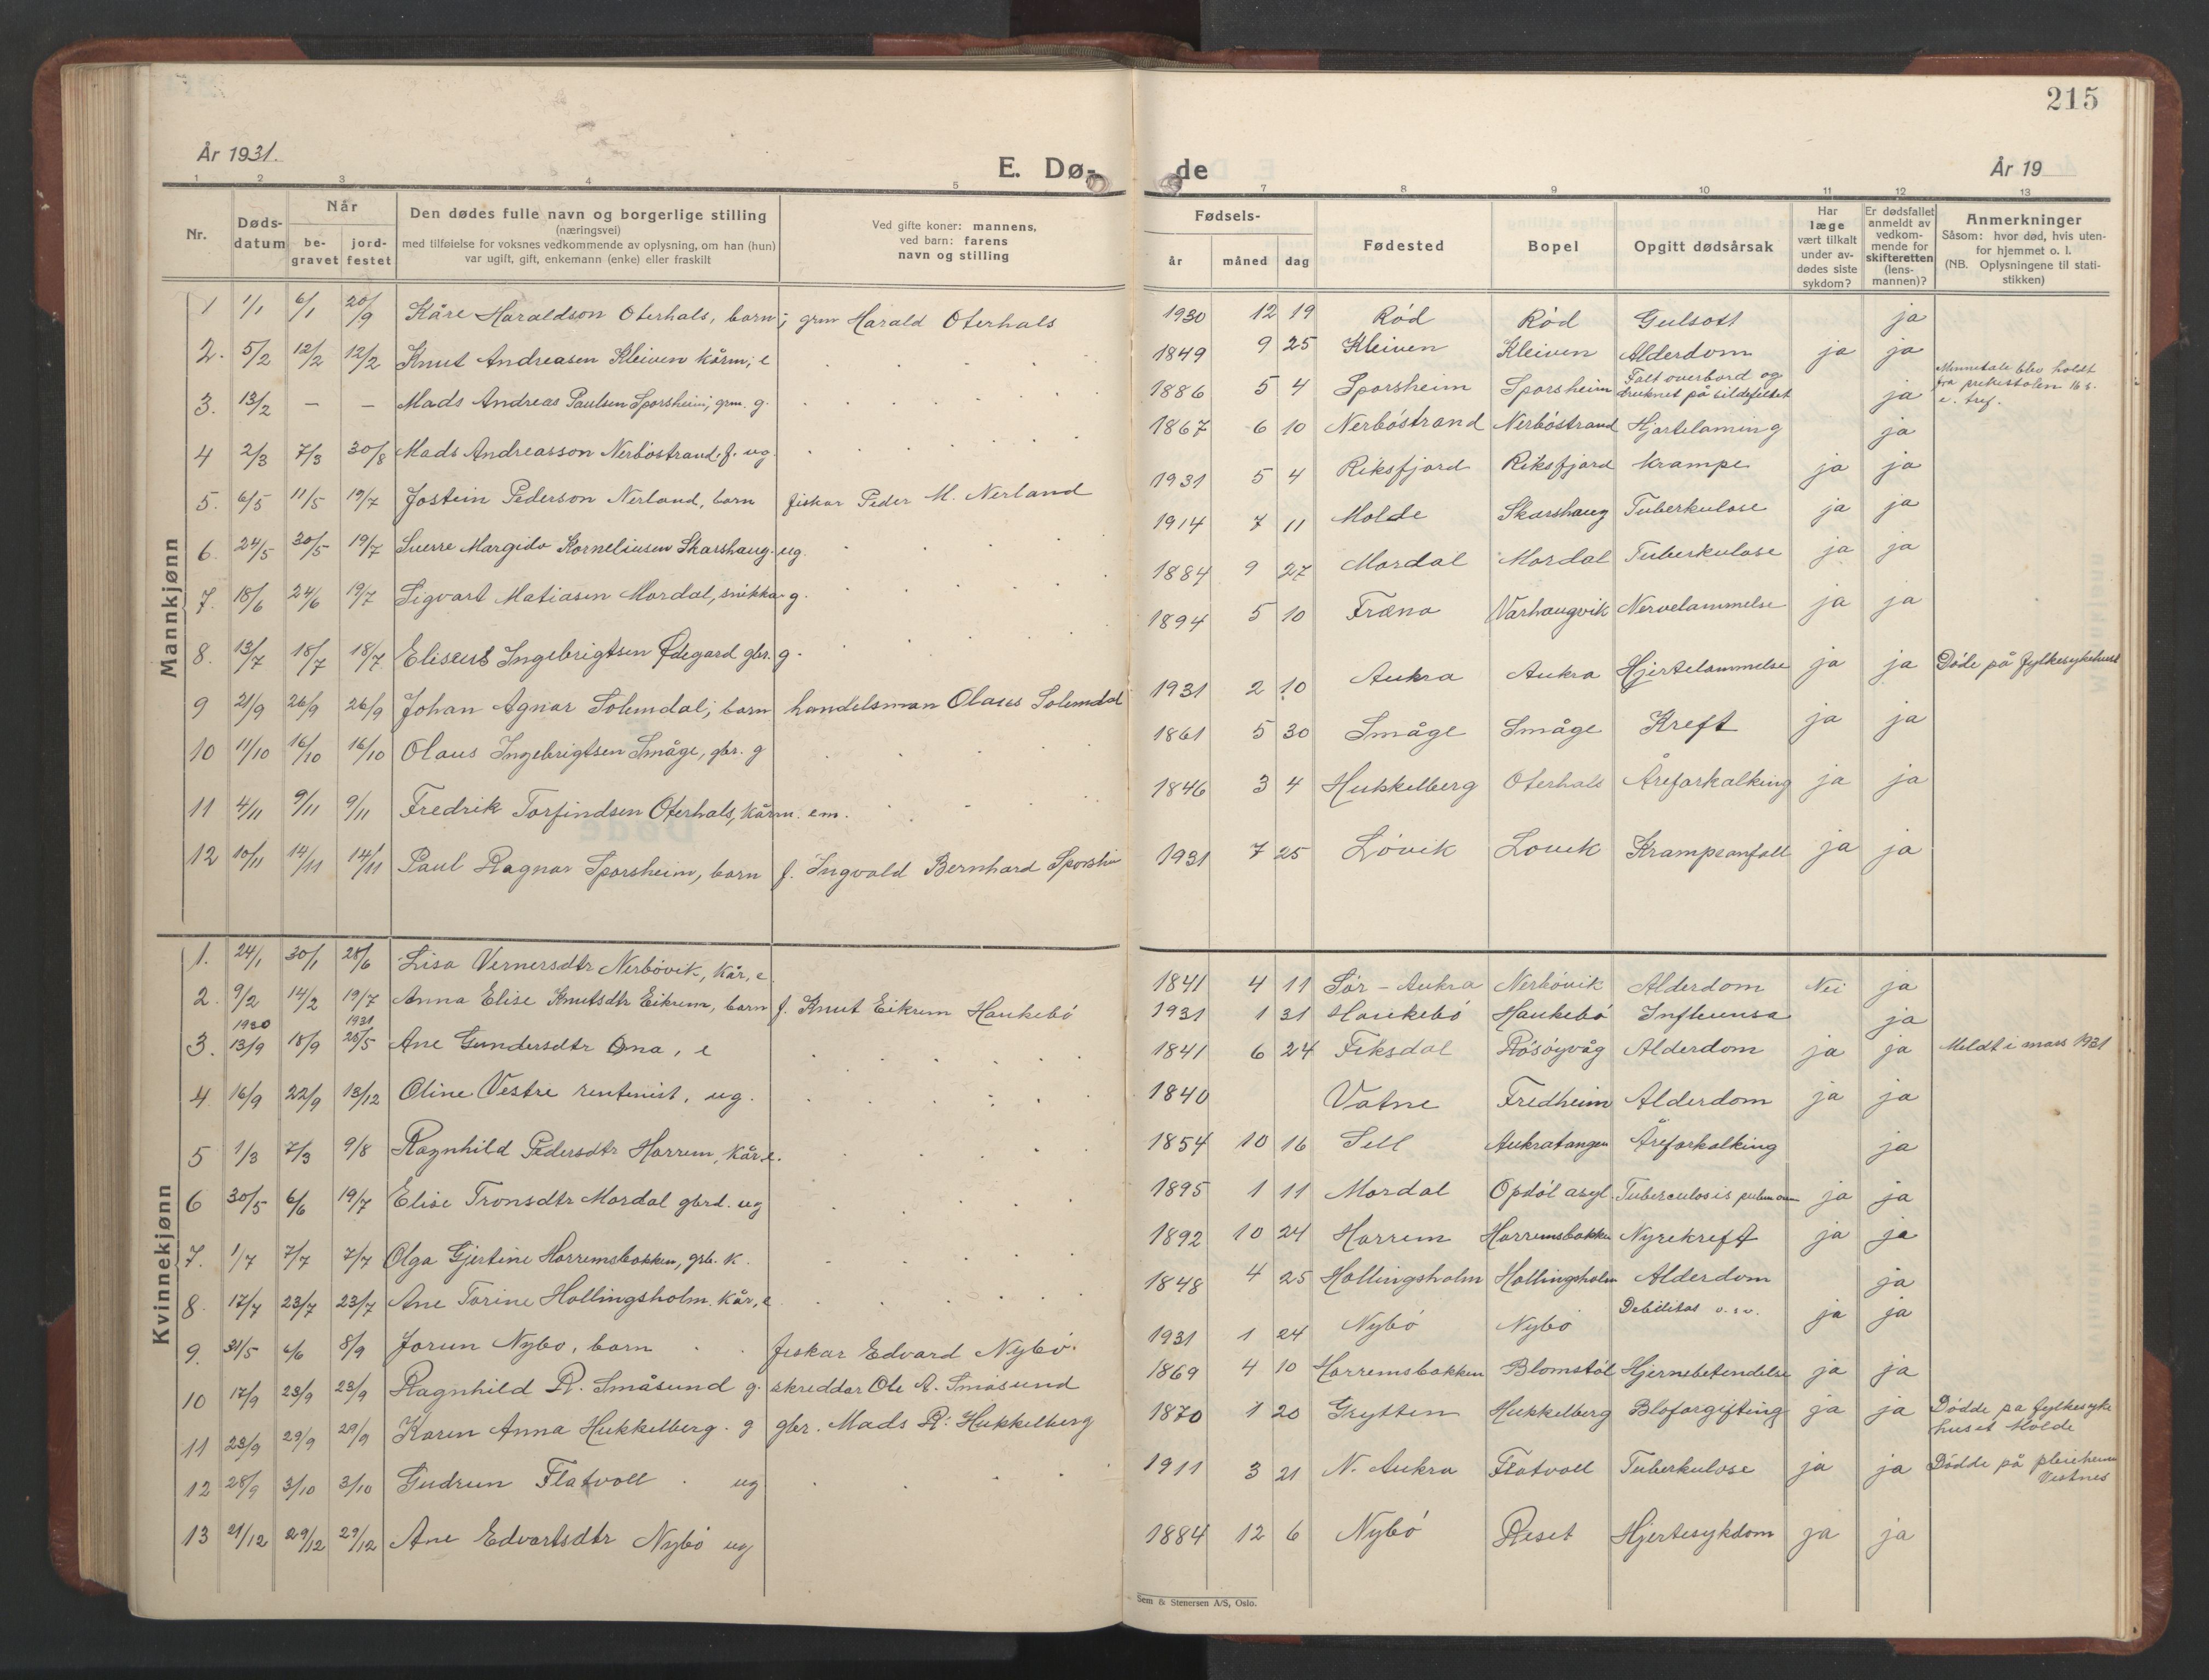 215
År 1931.
E. Dø-
de
År 19
1 2 3 4 5 7 8 9 10 11 12 13
Nr.
Døds-
datum
Når
be-
gravet
jord-
festet
Den dødes fulle navn og borgerlige stilling
(næringsvei)
med tilføielse for voksnes vedkommende av oplysning, om han (hun)
var ugift, gift, enkemann (enke) eller fraskilt
Ved gifte koner: mannens,
ved barn: farens
navn og stilling
Fødsels-
år måned dag
Fødested
Bopel
Opgitt dødsårsak
Har
læge
vært tilkalt
under av-
dødes siste
sykdom?
Er dødsfallet
anmeldt av
vedkom-
mende for
skifteretten
(lens-
mannen)?
Anmerkninger
Såsom: hvor død, hvis uten-
for hjemmet o. l.
(NB. Oplysningene til stati-
stikken)
Mannkjønn
1 1/1 6/1 20/9 Kåre Haraldson Oterhals, barn; grm Harald Oterhals 1930 12 19 Rød Rød Gulsott ja
2. 5/2 12/2 12/2 Knut Andreasen Kleiven kårm, e 1849 9 25 Kleiven Kleiven Alderdom ja ja
3. 13/2 — — Mads Andreas Paulsen Sporsheim, grm. g. 1886 5 4 Sporsheim Sporsheim Falt overbord og
druknet på sildefeltet ja Minnetale blev holdt
fra prekestolen 16 s.
e. tref.
4 2/3 7/3 30/8 Mads Andreasson Nerbøstrand. f. ug. 1867 6 10 Nerbøstrand Nerbøstrand Hjartelaming ja
5. 6/5 11/5 19/7 Jostein Pederson Nerland, barn fiskar Peder M. Nerland 1931 5 4 Riksfjord Riksfjord krampe ja ja
6. 24/5 30/5 19/7 Sverre Margido Korneliusen Skarshaug. ug. 1914 7 11 Molde Skarshaug Tuberkulose ja ja
7. 18/6 24/6 19/7 Sigvart Matiasen Mordal, snikkar g. 1884 9 27 Mordal Mordal Tuberkulose ja ja
8. 13/7 18/7 18/7 Eliseus Ingebrigtsen Ødegard gbr. g. 1894 5 10 Fræna Varhaugvik Nervelammelse ja ja
9 21/9 26/9 26/9 Johan Agnar Solemdal, barn handelsman Olaus Solemdal 1931 2 10 Aukra Aukra Hjertelammelse ja ja Døde på fylkesykehuset
10 11/10 16/10 16/10 Olaus Ingebrigtsen Småge, gbr. g 1861 5 30 Småge Småge Kreft ja ja
11 4/11 9/11 9/11 Fredrik Torfindsen Oterhals, kårm. em. 1846 3 4 Hukkelberg Oterhals Åreforkalking ja ja
12 10/11 14/11 14/11 Paul Ragnar Sporsheim, barn f. Ingvald Bernhard Sporsheim 1931 7 25 Løvik Lovik Krampeanfall ja ja
Kvinnekjønn
1. 24/1 30/1 28/6 Lisa Vernersdtr Nerbøvik, kår, e 1841 4 11 Sør-Aukra Nerbøvik Alderdom Nei ja
2. 9/2 14/2 19/7 Anna Elise Knutsdtr Eikrem, barn f. Knut Eikrem Haukebø 1931 1 31 Haukebø Haukebø Influensa ja
1930 1931
3. 13/9 18/9 25/5 Ane Gundersdtr Ona, e 1841 6 24 Fiksdal Røsøyvåg Alderdom ja ja Meldt i mars 1931
4 16/9 22/9 13/12 Oline Vestre rentenist, ug. 1840 Vatne Fredheim Alderdom ja ja
5 1/3 7/3 9/8 Ragnhild Pedersdtr Horrem, kår e. 1854 10 16 Sell Aukratangen Åreforkalking ja
6 30/5 6/6 19/7 Elise Tronsdtr Mordal gbrd. ug 1895 1 11 Mordal Opdøl asyl. Tuberculosis pulmonum ja ja
7. 1/7 7/7 7/7 Olga Gjertine Horremsbakken, grb. k. 1892 10 24 Horrem Horremsbakken Nyrekreft ja ja
8. 17/7 23/7 23/7 Ane Torine Hollingsholm. kår, e 1848 4 25 Hollingsholm Hollingsholm Alderdom ja
9. 31/5 6/6 8/9 Jorun Nybø, barn fiskar Edvard Nybø. 1931 1 24 Nybø Nybø Debilitas ja ja
10 17/9 23/9 23/9 Ragnhild R. Småsund g. skreddar Ole A. Småsund 1869 4 10 Horremsbakken Blomstøl Hjernebetendelse ja ja
11 23/9 29/9 29/9 Karen Anna Hukkelberg. g gbr. Mads R. Hukkelberg 1870 1 20 Grytten Hukkelberg Bloforgifting ja ja Dødde pa fylkesyke
huset Molde
12 28/9 3/10 3/10 Gudrun Flatvoll ug 1911 3 21 N. Aukra Flatvoll Tuberkulose ja ja Dødde på pleieheim
Vestnes
13 21/12 29/12 29/12 Ane Edvartsdtr Nybø ug 1884 12 6 Nybø Reset Hjertesykdom ja ja
Sem & Stenersen A/S, Oslo.